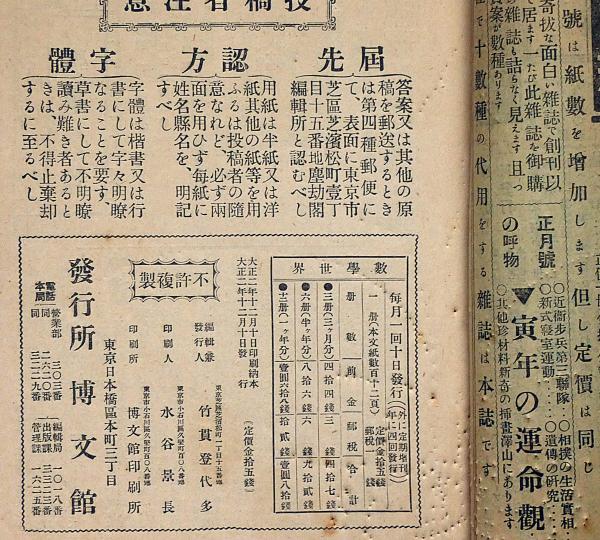 號は紙數を增加します但し定價は同じ
正月號
の呼物
▼寅年の運命觀
◯近衞步兵第三聯隊
◯新式寢室運動
◯相撲の生活實相
◯遺傳の硏究
◯其他珍材料新奇の揷畫澤山にあります
奇拔な面白い雜誌で創刊以
て居ます一たび此雜誌を御購
雜誌も詰らなく見えます且つ
賞案が數種あります
で十數種の代用をする雜誌は本誌です
投稿者注意
屆先
答案又は其他の原
稿を郵送するとき
は第四種郵便に
て、表面に東京市
芝區芝濱松町壹丁
目十五番地塵劫閣
編輯所と認むべし
認方
用紙は半紙又は洋
紙其他の紙等を用
ふるは投稿者の隨
意なれど、必ず兩
面を用ひず每紙に
姓名縣名を、明記
すべし
字體
字體は楷書又は行
書にして字々明瞭
なることを要す、
草書にして不明瞭
讀み難き者あると
きは、不得止棄却
するに至るべし
數學世界
每月一回十日發行(外に定期增刊年に四回發行)
一册(本文紙數百十二頁) 定價金拾五錢 郵稅
册數 前金 郵稅 合計
●三册(三ヶ月分) 四拾四錢 三錢 四拾七錢
●六册(半ヶ年分) 八拾六錢 六錢 九拾貳錢
●十二册(一ヶ年分) 壹圓六拾八錢 拾貳錢 壹圓八拾錢
不許複製
大正二年十二月十日印刷納本
大正二年十二月十日發行
(定價金拾五錢)
編輯兼
發行人
竹貫登代多
印刷人
東京市小石川區久堅町百〇八番地
水谷景長
印刷所
東京市小石川區久堅町百〇八番地
博文館印刷所
東京日本橋區本町三丁目
發行所 博文館
電話本局